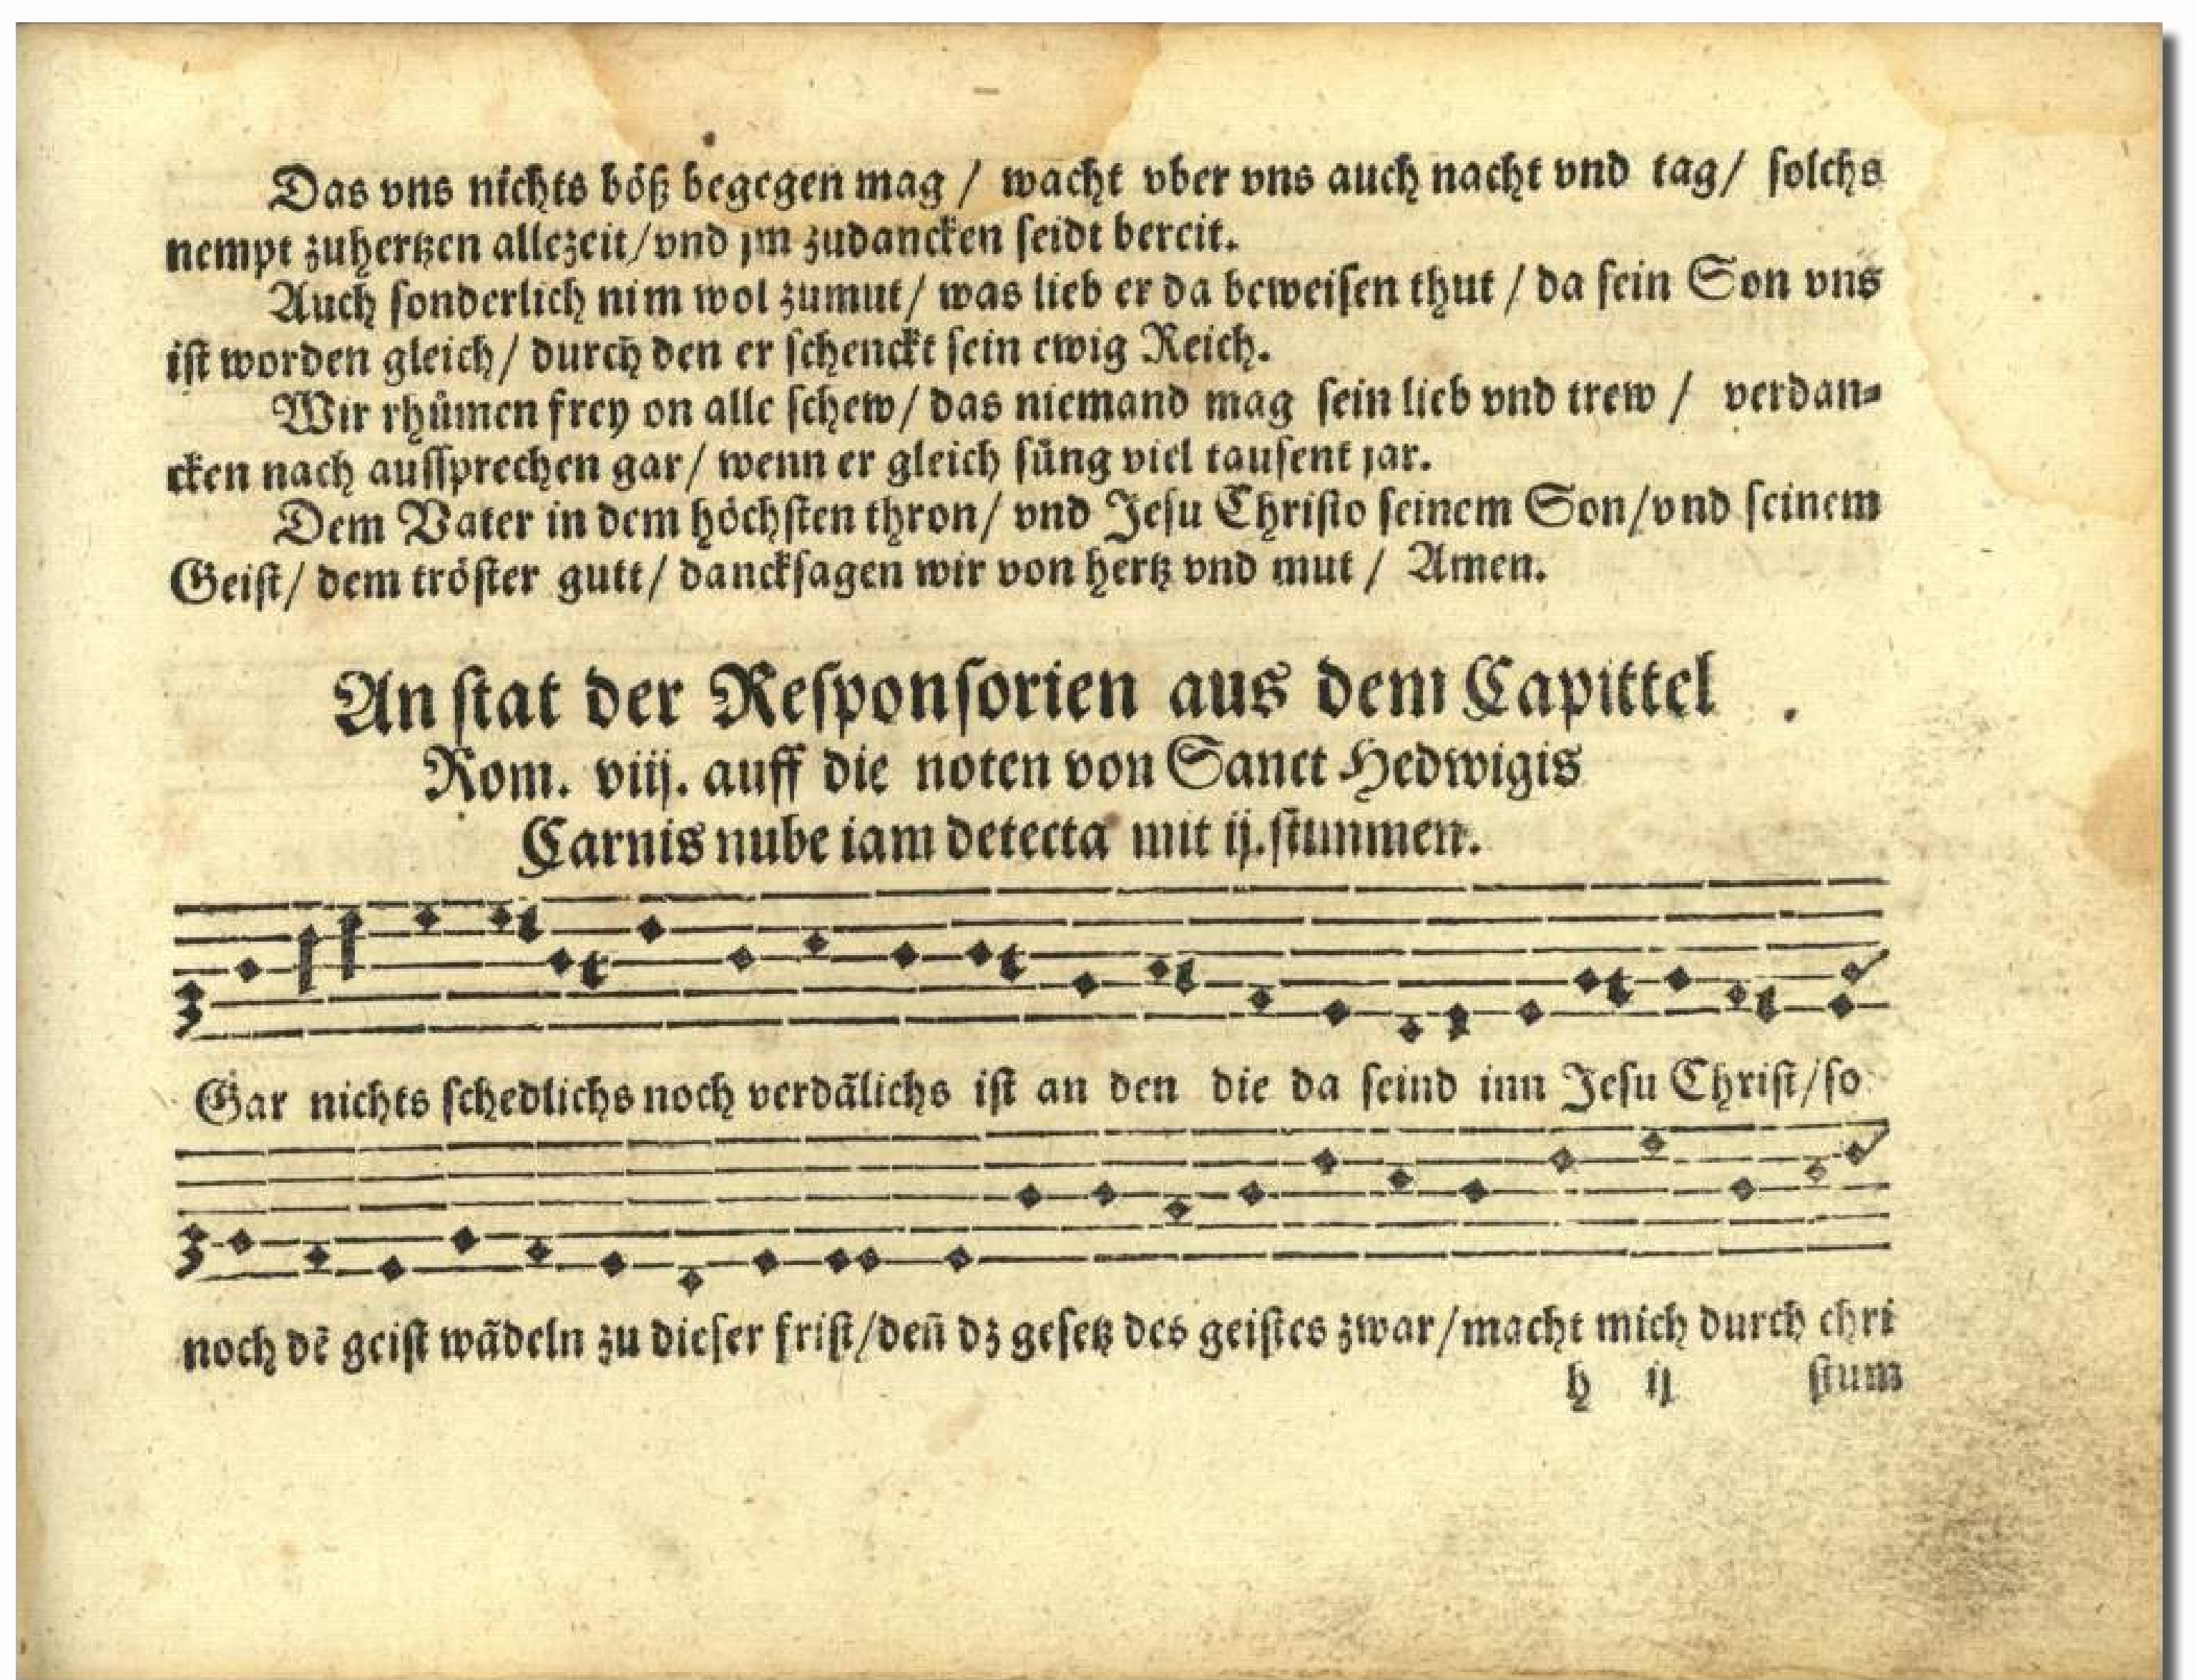 Das vns nichts böß begegen mag / wacht vber vns auch nacht vnd tag/ solchs
nempt zuhertzen allezeit/vnd jm zudancken seidt bereit.
Auch sonderlich nim wol zumut/ was lieb er da beweisen thut / da sein Son vns
ist worden gleich/ durch den er schenckt sein ewig Reich.
Wir rhůmen frey on alle schew/ das niemand mag sein lieb vnd trew / verdan⸗
cken nach ausssprechen gar/ wenn er gleich sůng viel tausent jar.
Dem Vater in dem höchsten thron/ vnd Jesu Christo seinem Son/vnd seinem
Geist/ dem tröster gutt/ dancksagen wir von hertz vnd mut / Amen.
An stat der Responsorien aus dem Capittel
Rom. viij. auff die noten von Sanct Hedwigis
Carnis nube iam detecta mit ij.stimmen.
Gar nichts schedlichs noch verdãlichs ist an den die da seind inn Jesu Christ/so
noch dẽ geist wãdeln zu dieser frist/deñ dz gesetz des geistes zwar/macht mich durch chri
h ij stum